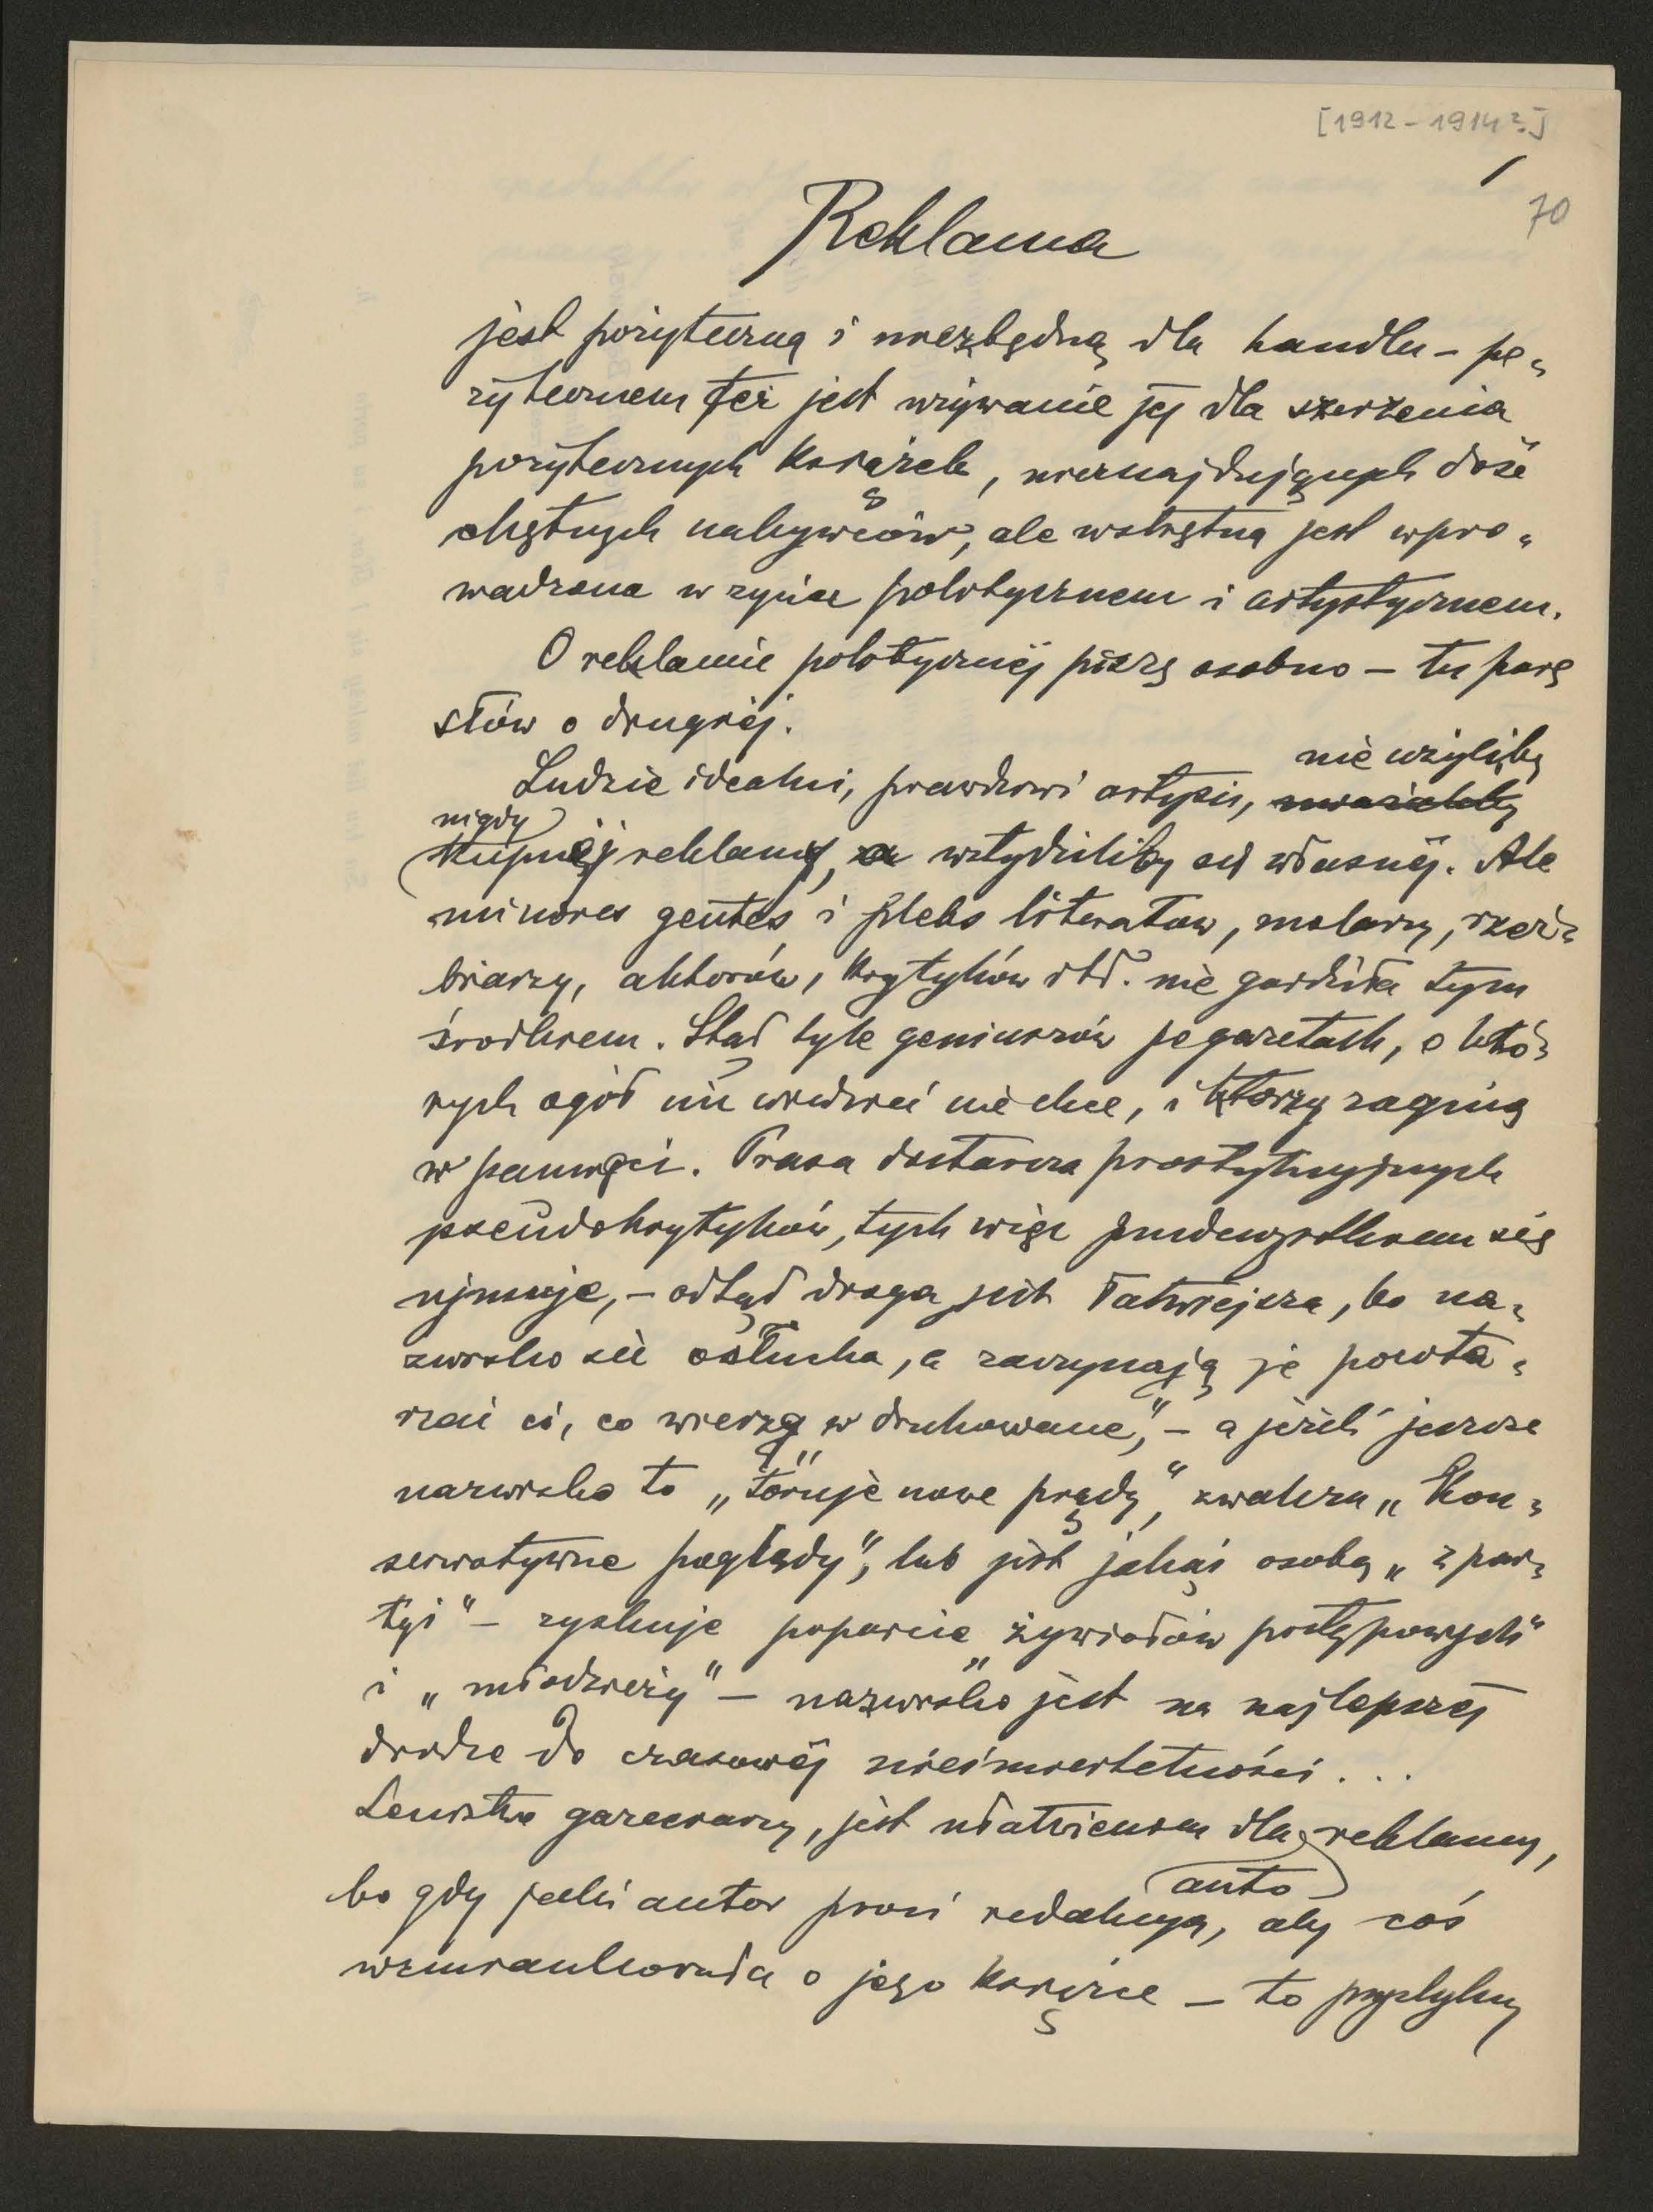 [1912-1914?]
1
70
Reklama
jest pożyteczną i niezbędną dla handlu – po„
żytecznem też jest używanie jéj dla szerzenia
pożytecznych książek, nieznajdujących dość
chętnych nabywców, ale wstrętną jest wpro„
wadzona w życie polityczne i artystycznem.
O reklamie politycznéj piszę osobno – tu parę
słów o drugiéj.
nie użyliby
Ludzie idealni, prawdziwi artyści,
nigdy
kupnéj reklamy, a wstydziliby się własnéj. Ale
minores gentes i plebs literatów, malarzy, rzeź„
biarzy, aktorów, krytyków itd. nie gardziła tym
środkiem. Stąd tyle geniuszów po gazetach, o któ„
rych ogół nic wiedzieć nie chce, i którzy zaginą
w pamięci. Prasa dostarcza prostytucyjnych
pseudokrytyków, tych więc przedewszystkiem się
ujmuje, – odtąd droga jest łatwiejsza, bo na„
zwisko się osłucha, a zaczynają je powta„
rzać ci, co wierzą „w drukowane", – a jeżeli jeszcze
nazwisko to „toruje nowe prądy", zwalcza „kon„
serwatywne poglądy", lub jest jakąś osobą „z par„
tyi" – zyskuje poparcie „żywiołów postępowych"
i „młodzieży" – nazwisko jest na najlepszéj
drodze do czasowéj nieśmiertelności...
Lenistwo gazeciarzy, jest ułatwieniem dla reklamy,
auto
bo gdy jakiś autor prosi redakcyą, aby coś
wzmiankowała o jego książce – to